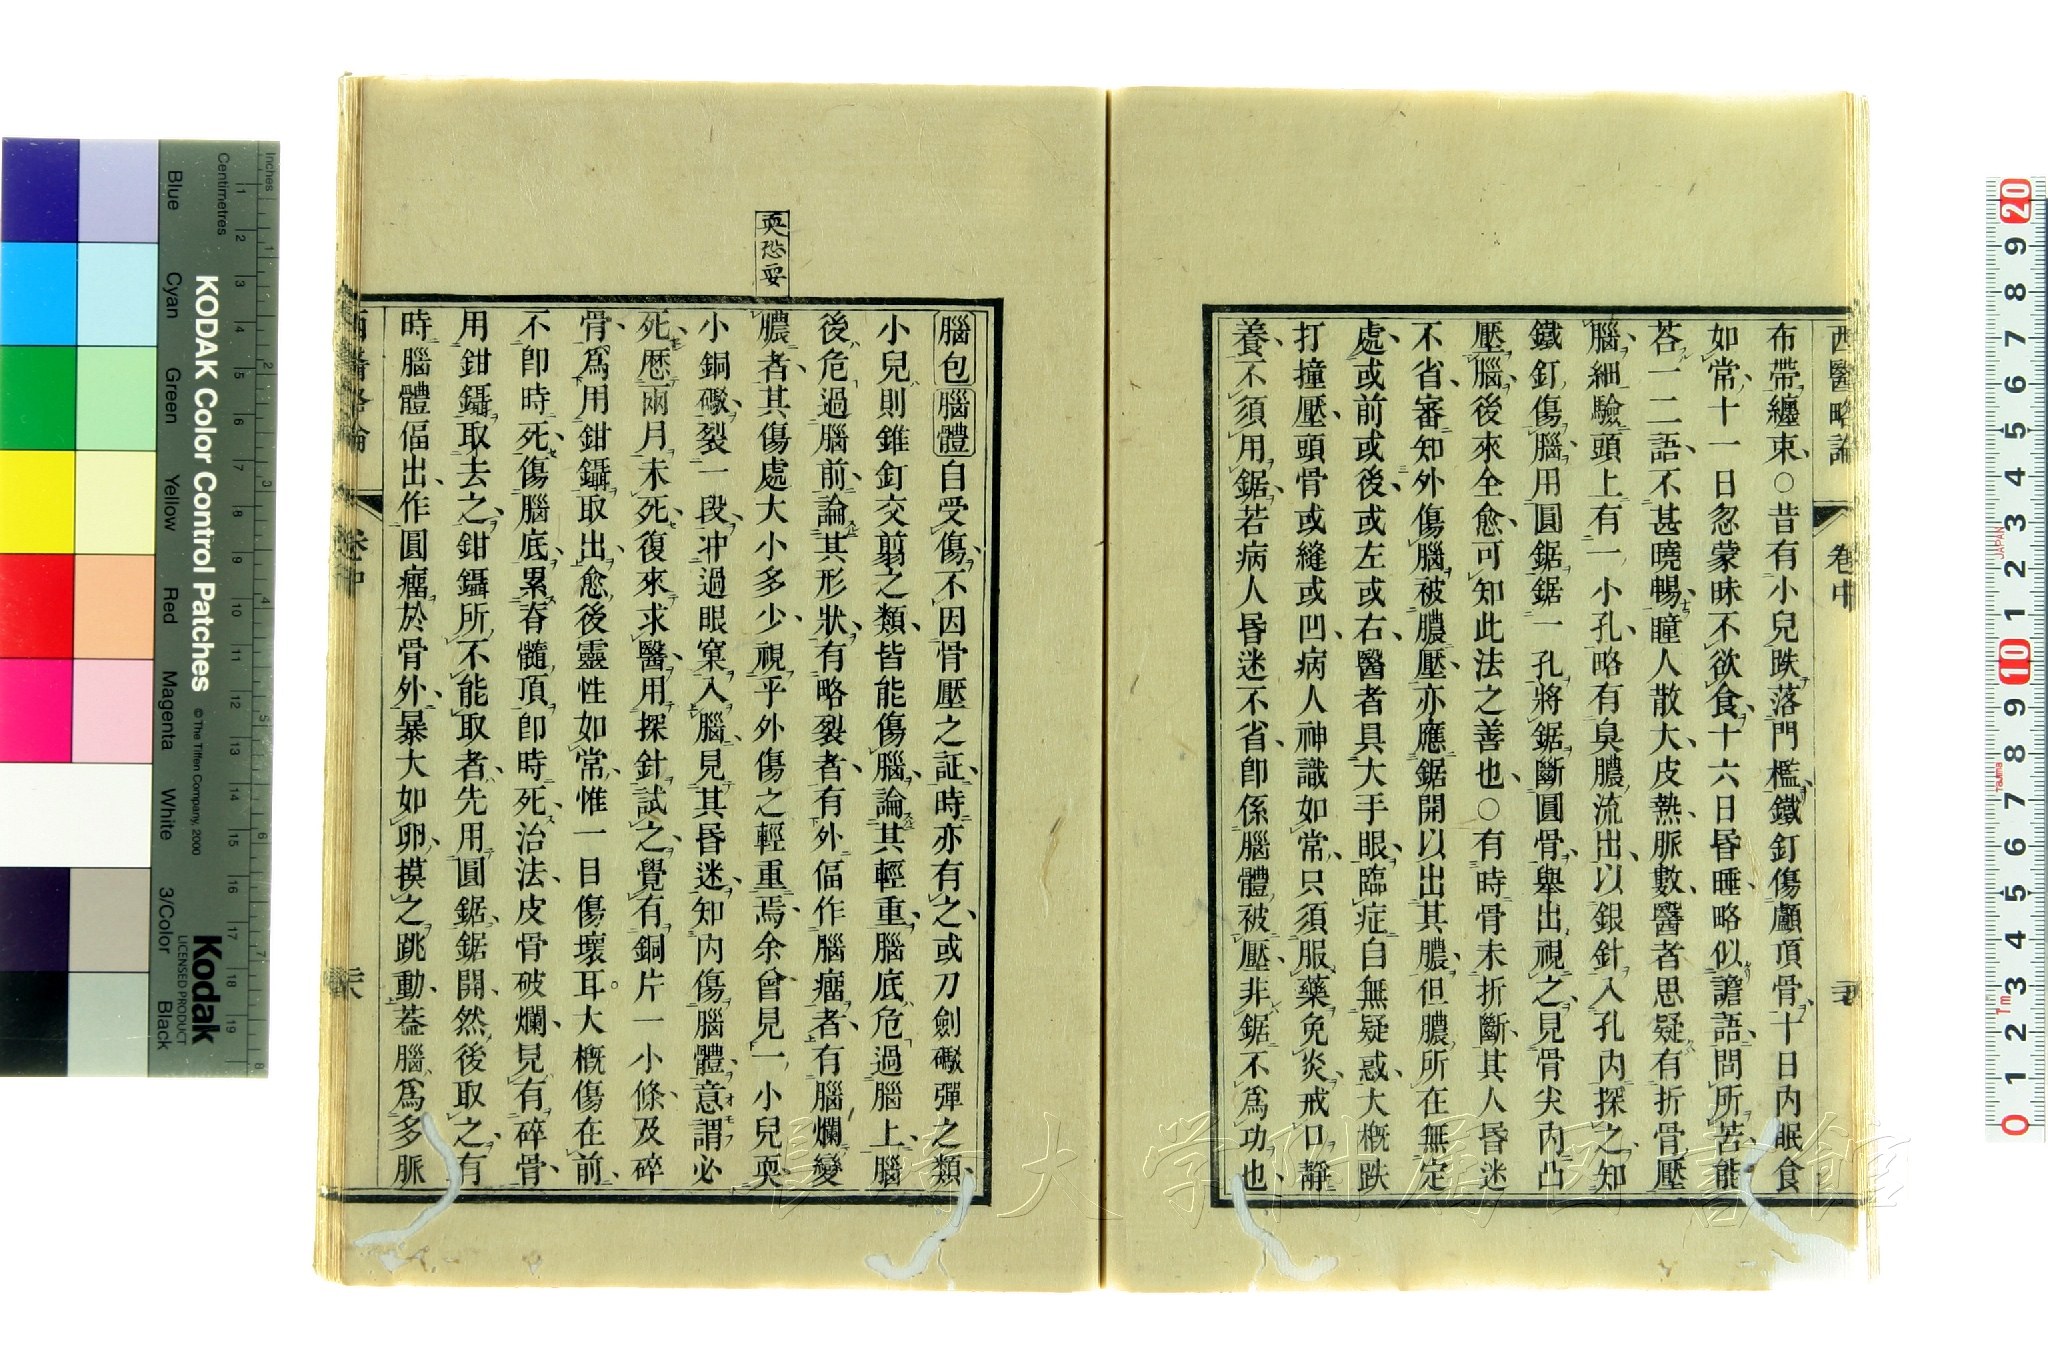 西醫略論
卷中
布帶纏束○昔有小兒跌落門檻鐵釘傷顱頂骨十日內眠食
如常十一日忽蒙昧不欲食十六日昏睡略似譫語問所苦能
荅一二語不甚曉暢瞳人散大皮熱脈數醫者思疑有折骨壓
腦細驗頭上有一小孔略有臭膿流出以銀針入孔內探之知
鐵釘傷腦用圓鋸鋸一孔將鋸斷圓骨舉出視之見骨尖內凸
壓腦後來全愈可知此法之善也○有時骨未折斷其人昏迷
不省審知外傷腦被膿壓亦應鋸開以出其膿但膿所在無定
處或前或後或左或右醫者具大手眼臨症自無疑惑大概跌
打撞壓頭骨或縫或凹病人神識如常只須服藥免炎戒口靜
養不須用鋸若病人昏迷不省卽係腦體被壓非鋸不爲功也
耎恐耍
腦包腦體自受傷不因骨壓之証時亦有之或刀劍礮彈之類
小兒則錐釘交翦之類皆能傷腦論其輕重腦底危過腦上腦
後危過腦前論其形狀有略裂者有外傴作腦瘤者有腦爛變
膿者其傷處大小多少視乎外傷之輕重焉余曾見一小兒耎
小銅礮裂一段冲過眼窠入腦見其昏迷知內傷腦體意謂必
死歷兩月未死復來求醫用探針試之覺有銅片一小條及碎
骨爲用鉗鑷取出愈後靈性如常惟一目傷壞耳。大概傷在前
不卽時死傷腦底累脊髓頂卽時死治法皮骨破爛見有碎骨
用鉗鑷取去之鉗鑷所不能取者先用圓鋸鋸開然後取之有
時腦體傴出作圓瘤於骨外暴大如卵摸之跳動葢腦爲多脈
西醫略論
卷中
長崎大学附属図書館
KODAK Color Control Patches
© The Tiffen Company, 2000
Kodak
LICENSED PRODUCT
Inches
Centimetres
Blue
Cyan
Green
Yellow
Red
Magenta
White
3/Color
Black